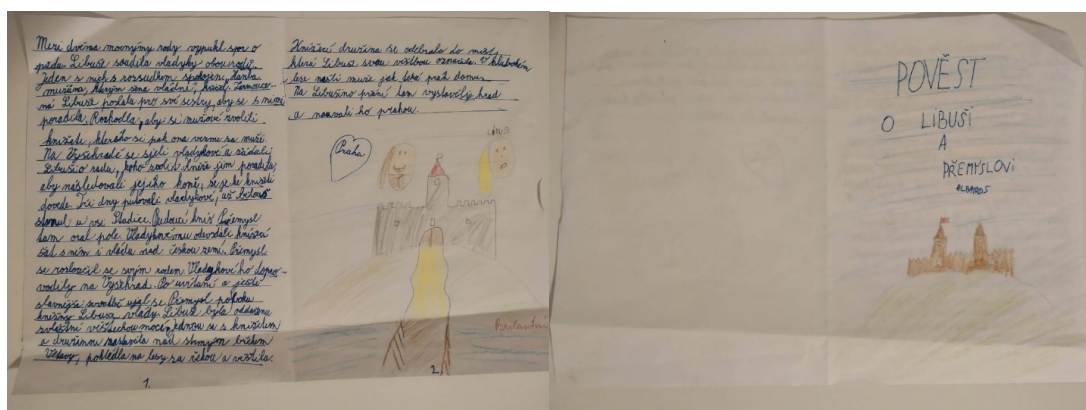 Mezi dvěma mocnými rody vypukl spor o
půdu Libuše soudila vladyky obou rodů.
Jeden z nich s rozsudkem spokojen, Hanba
mužům, kterým žena vládne,
Libuše poslala pro své sestry, aby se s nimi
poradila, Rozhodla, aby si mužové zvolili
knížete, kterého si pak ona vezme za muže
Na Vyšehradě se sjeli vladykové a žádali
Libuši o radu, koho zvolit. Kněžna jim poradila,
aby následovali jejího koně, že je ke knížeti
dovede. Tři dny putovali vladykové, až
stanul u vsi Stadice. Budoucí kníže Přemysl
tam oral pole. Vladykové mu odevzdali knížecí
šat s ním i vládu nad českou zemí. Přemysl
se rozloučil se svým rodem Vladykové ho dopro-
vodily na Vyšehrad. Po uvítání a ještě
slavnější svatbě ujal se Přemysl po boku
kněžny Libuše vlády. Libuše byla oddařena
zvláštní věšteckou mocí, jednou se s knížetem
a družinou zastavila nad strmým břehem
Vltavy, pohlédla na lesy za řekou a věštila.
1.
Knížecí družina se odebrala do míst,
která Libuše svou věštbou označila. V hlubokém
lese našli muže jak tesá práh domu.
Na Libušino přání tam vystavěly hrad
a nazvali ho prahou.
Praha
2.
POVĚST
O LIBUŠI
A
PŘEMYSLOVI
ALBATROS